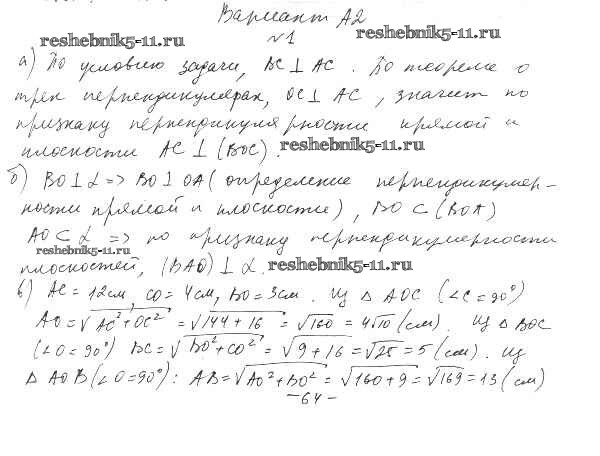 Вариант А2
reshebnik5-11.ru reshebnik5-11.ru
№1
а) По условию задачи, BC ⊥ AC. По теореме о
трех перпендикулярах, OC ⊥ AC, значит по
признаку перпендикулярности прямой и
плоскости AC ⊥ (BOC). reshebnik5-11.ru
б) BO ⊥ α => BO ⊥ OA (определение перпендикуляр-
ности прямой и плоскости), BO ⊂ (BOA)
AO ⊂ α => по признаку перпендикулярности
reshebnik5-11.ru
плоскостей, (BAO) ⊥ α. reshebnik5-11.ru
в) AC = 12см, CO = 4см, BO = 3см. Из △ AOC (∠C = 90°)
AO = √AC²+OC² = √144+16 = √160 = 4√10 (см). Из △ BOC
(∠O = 90°) BC = √BO²+CO² = √9+16 = √25 = 5 (см). Из
△ AOB (∠O = 90°): AB = √AO²+BO² = √160+9 = √169 = 13 (см)
-64-